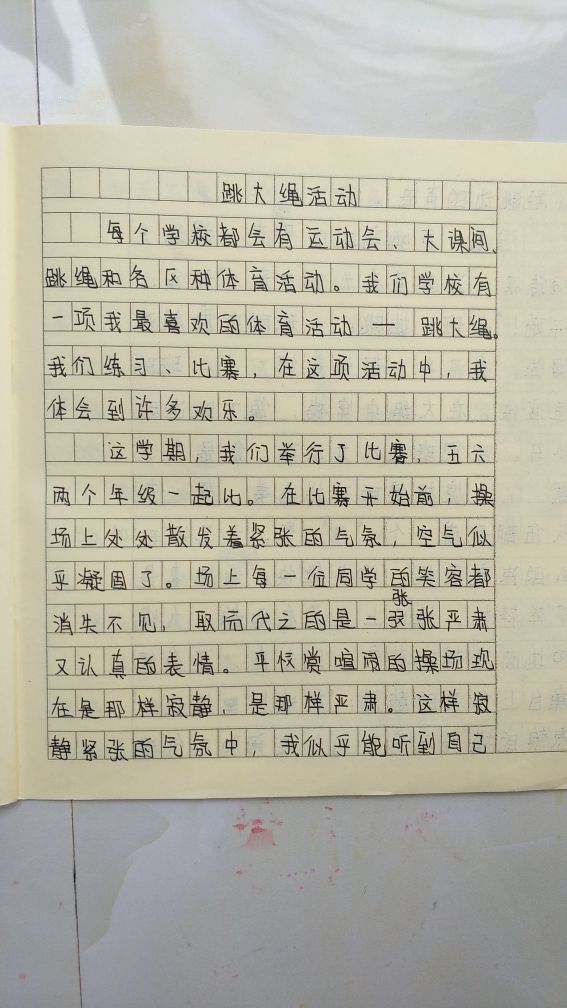 跳大绳活动
每个学校都会有运动会、大课间、
跳绳和各区种体育活动。我们学校有
一项我最喜欢的体育活动——跳大绳。
我们练习、比赛，在这项活动中，我
体会到许多欢乐。
这学期，我们举行了比赛，五六
两个年级一起比。在比赛开始前，操
场上处处散发着紧张的气氛，空气似
乎凝固了。场上每一位同学的笑容都
消失不见，取而代之的是一张张严肃
又认真的表情。平校赏喧闹的操场现
在是那样寂静，是那样严肃。这样寂
静紧张的气氛中，我似乎能听到自己